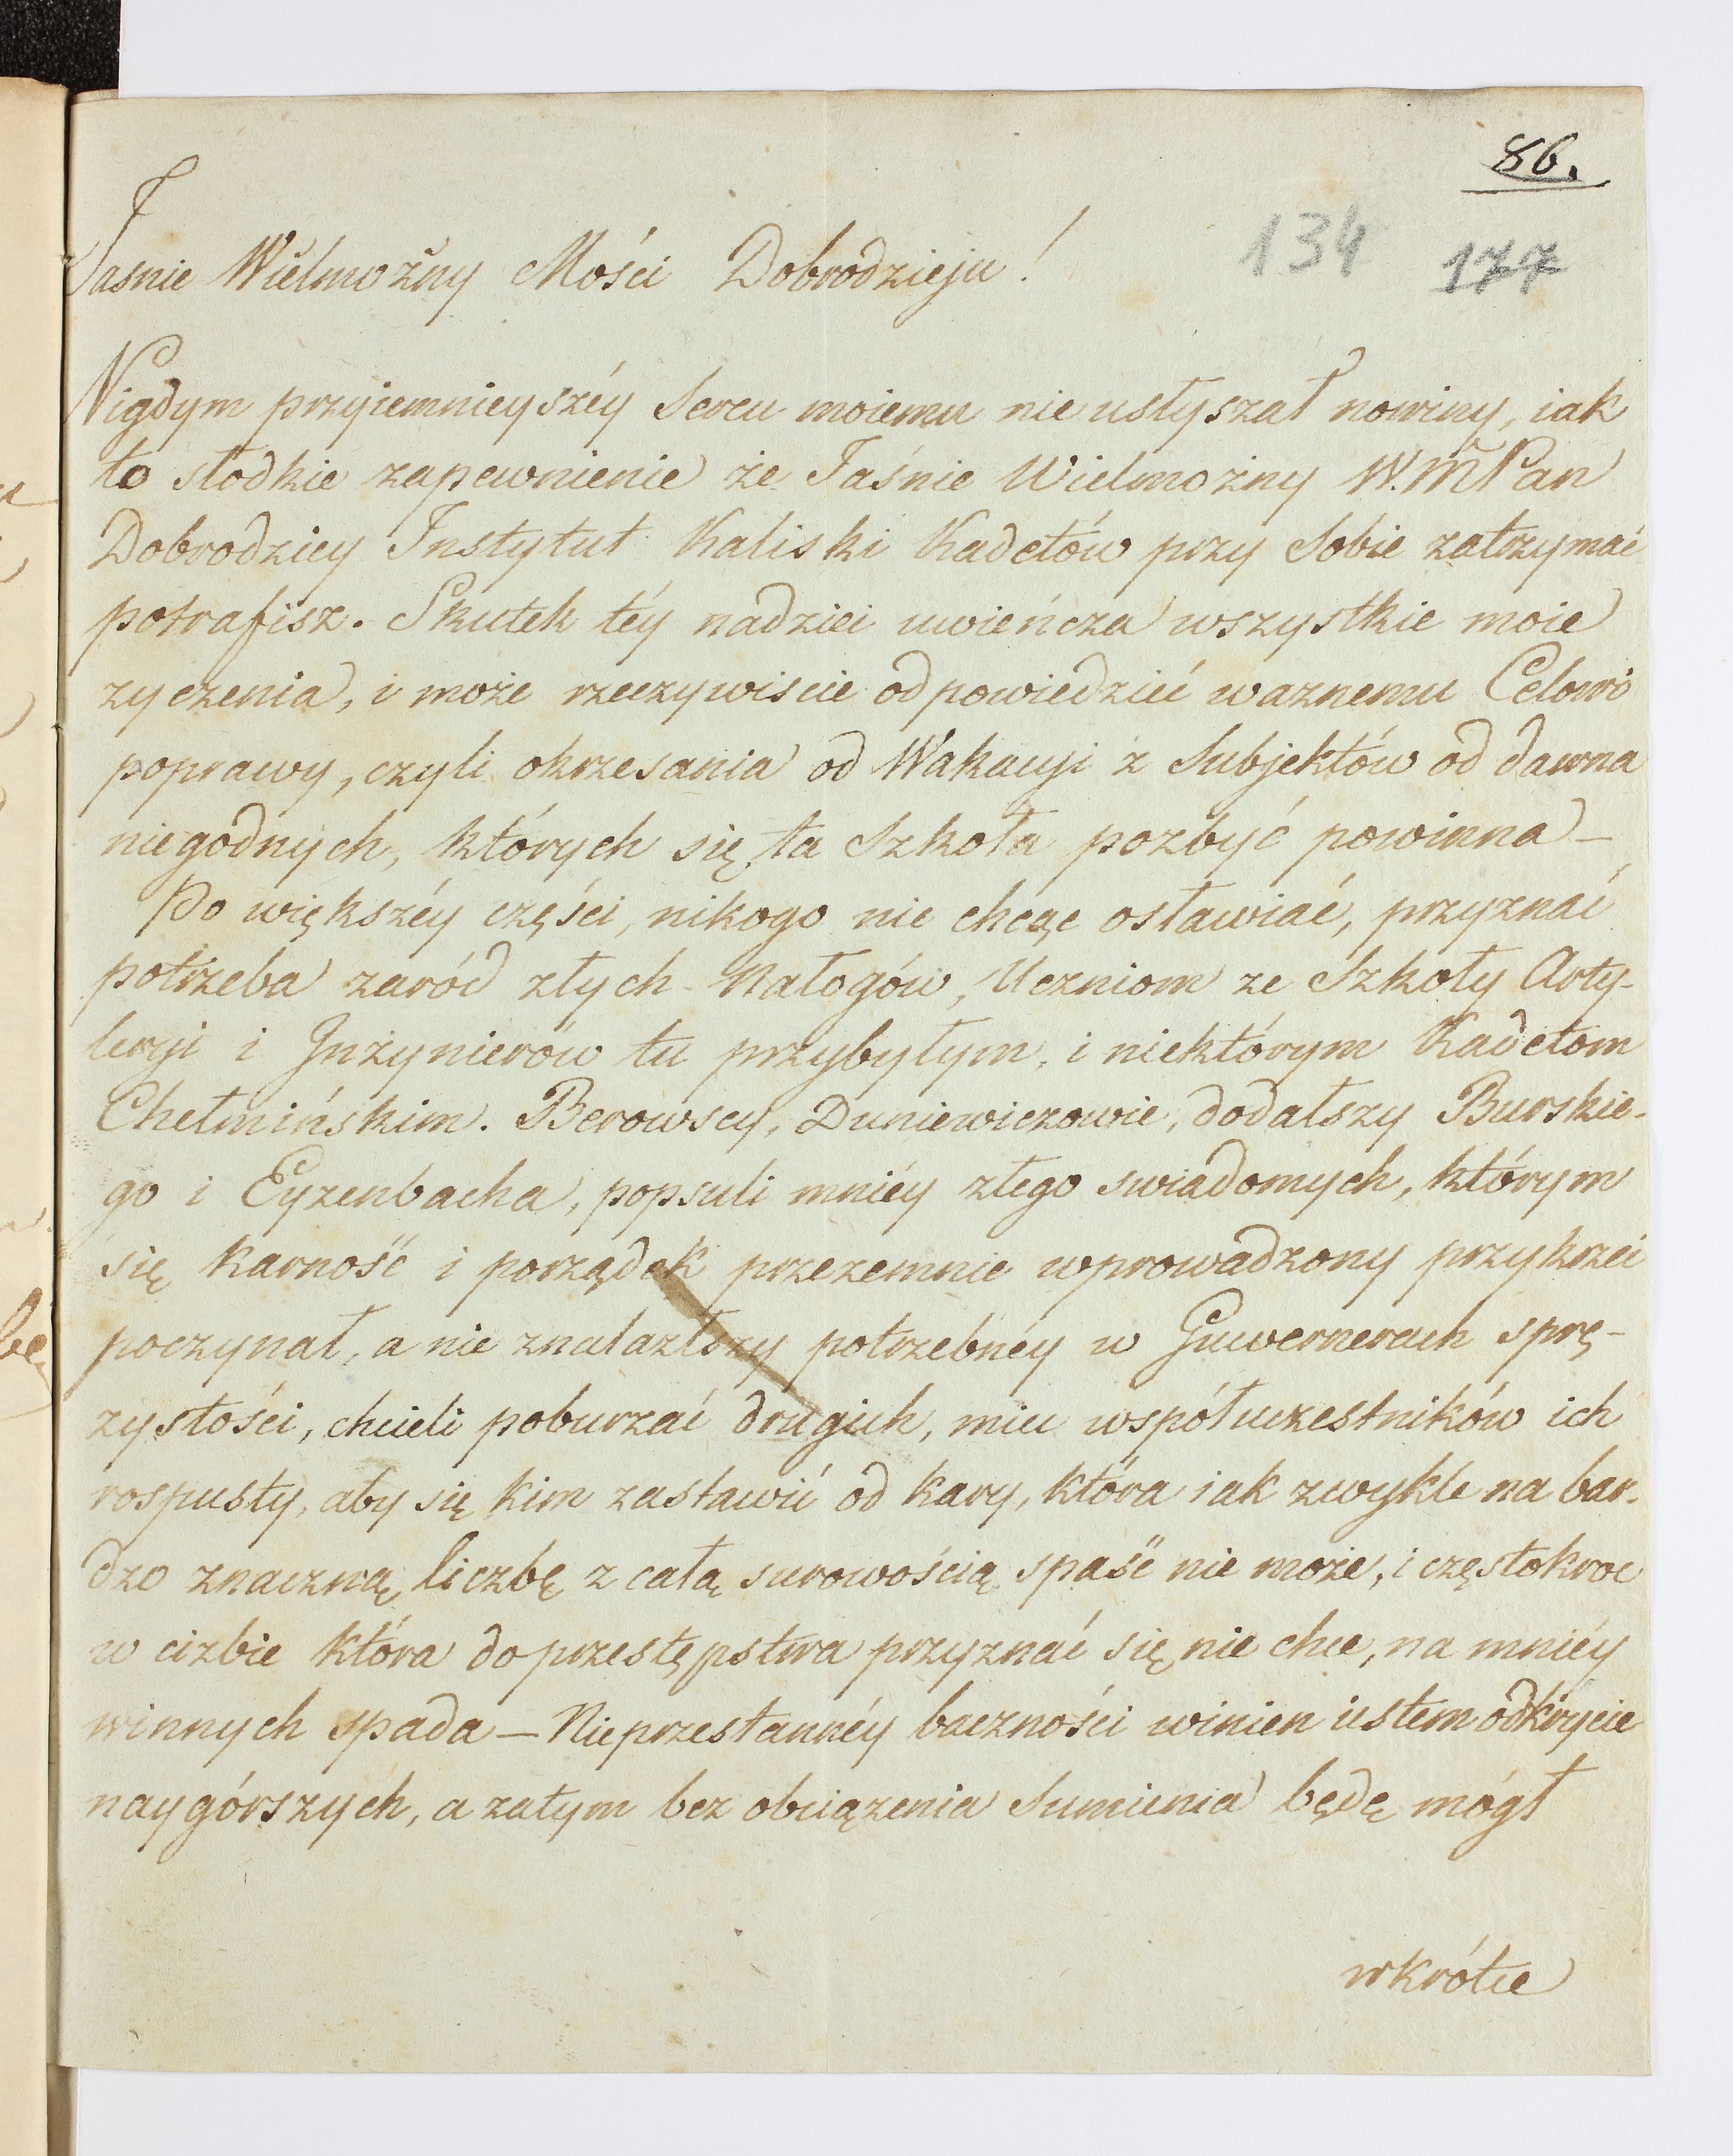 86.
134 177
Jasnie Wielmożny Mości Dobrodzieju!
Nigdym przyiemnieyszéy Sercu moiemu nie usłyszał nowiny, iak
to słodkie zapewnienie że Jaśnie Wielmożny W.M Pan
Dobrodziey Instytut Kaliski Kadetów przy Sobie zatrzymać
potrafisz. Skutek téy nadziei uwieńcza wszystkie moie
zyczenia, i może rzeczywiscie odpowiedzieć waznemu Celowi
poprawy, czyli okrzesania od Wakacyi z Subjektów od dawna
niegodnych, których się ta Szkoła pozbyć powinna —
Po większéy części, nikogo nie chcąc osławiać, przyznać
potrzeba zaród złych Nałogów, Uczniom ze Szkoły Arty-
leryi i Inżynierów tu przybyłym, i niektórym Kadetom
Chełmińskim. Berowscy, Duniewiczowie, dodałszy Burskie-
go i Eyzenbacha, popsuli mniéy złego swiadomych, którym
się karność i porządek przezemnie wprowadzony przykrzei
poczynał, a nie znalazłszy potrzebnéy w Guwernerach sprę-
zystości, chcieli poburzać drugich, miec współuczestników ich
rospusty, aby się kim zastawić od kary, która iak zwykle na bar-
dzo znaczną liczbę z całą surowością spaść nie może, i częstokroc
w cizbie która do przestępstwa przyznać się nie chce, na mniéy
winnych spada — Nieprzestannéy baczności winien iestem odkrycie
naygórszych, a zatym bez obciązenia Sumienia będę mógł
wkrótce